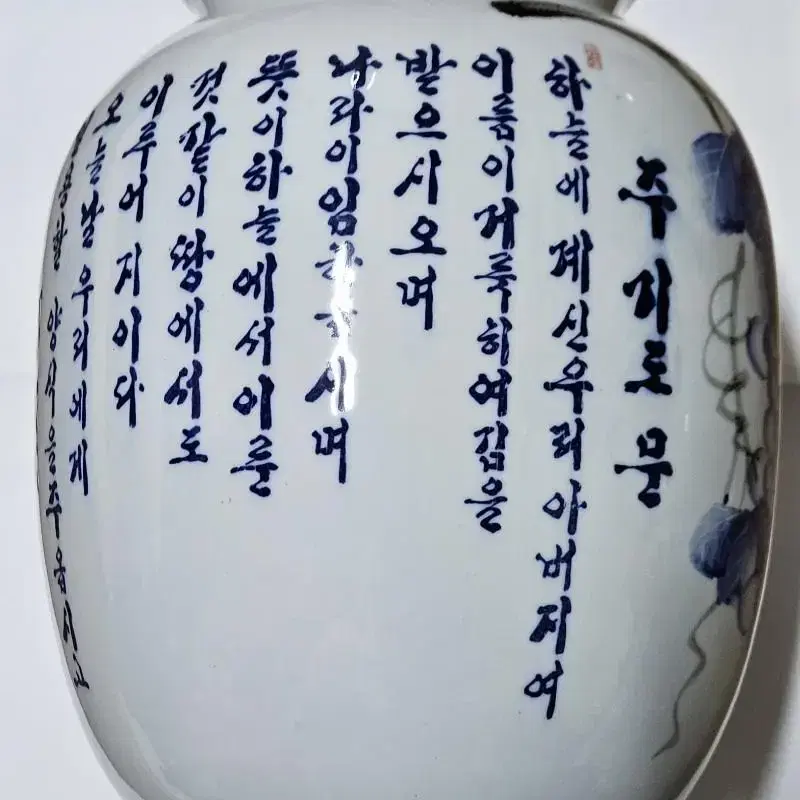 주기도문
하늘에 계신 우리 아버지여
이름이 거룩히 여김을
받으시오며
나라이 임하옵시며
뜻이 하늘에서 이룬
것 같이 땅에서도
이루어 지이다
오늘날 우리에게
양식을 주옵시고